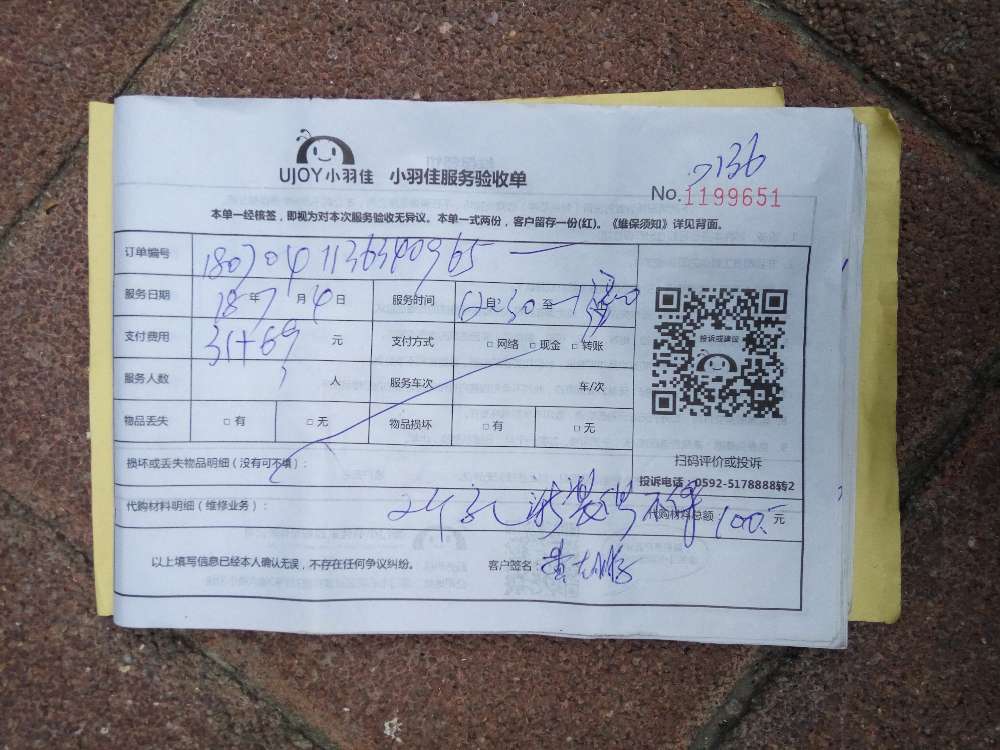 7136
UJOY 小羽佳 小羽佳服务验收单
No.1199651
本单一经核签，即视为对本次服务验收无异议。本单一式两份，客户留存一份(红)。《维保须知》详见背面。
订单编号 1807041136340965
服务日期 18 年 7 月 4 日 服务时间 自 12:30 至
支付费用 31+69 元 支付方式 □ 网络 □ 现金 □ 转账
投诉或建议
服务人数 人 服务车次 车/次
物品丢失 □ 有 □ 无 物品损坏 □ 有 □ 无
扫码评价或投诉
损坏或丢失物品明细（没有可不填）：
投诉电话：0592-5178888转2
代购材料明细（维修业务）： 代购材料总额 100 元
以上填写信息已经本人确认无误，不存在任何争议纠纷。 客户签名：